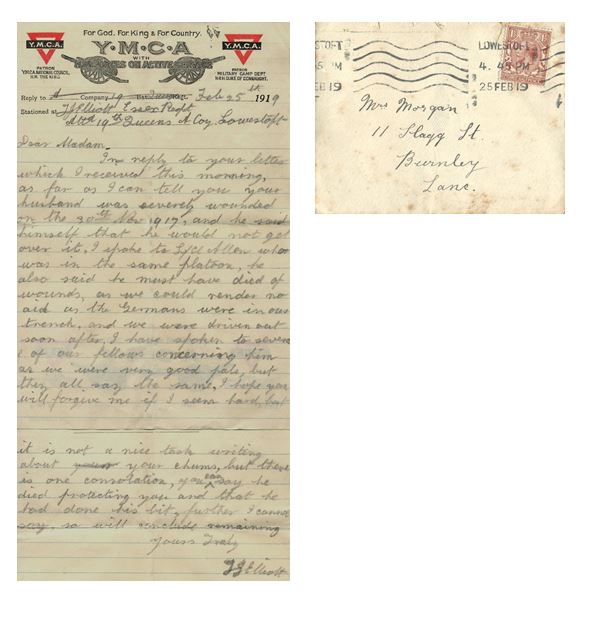 For God. For King & For Country.
Y.M.C.A.
Y.M.C.A
Y.M.C.A.
WITH
H.M. FORCES ON ACTIVE SERVICE
PATRON
Y.M.C.A. NATIONAL COUNCIL.
H.M. THE KING.
PATRON
MILITARY CAMP DEPT.
H.R.H. DUKE OF CONNAUGHT.
Reply to A Company 19 Regt. Feb 25th 1919
Stationed at T J Elliott Essex Regt
Attd 19th Queens A Coy, Lowestoft
Dear Madam
In reply to your letter
which I received this morning,
as far as I can tell you your
husband was severely wounded
on the 30th Nov 1917, and he said
himself that he would not get
over it, I spoke to Allen who
was in the same platoon, he
also said he must have died of
wounds, as we could render no
aid as the Germans were in our
trench, and we were driven out
soon after, I have spoken to severa
l of our fellows concerning him
as we were very good pals, but
they all say the same. I hope you
will forgive me if I seem hard, but
it is not a nice task writing
about your your chums, but there
is one consolation, you can say he
died protecting you and that he
had done his bit, further I cannot
say, so will conclude remaining
Yours Truly
T J Elliott
LOWESTOFT
4.45 PM
25 FEB 19
Mrs Morgan
11 Flagg St.
Burnley
Lanc.